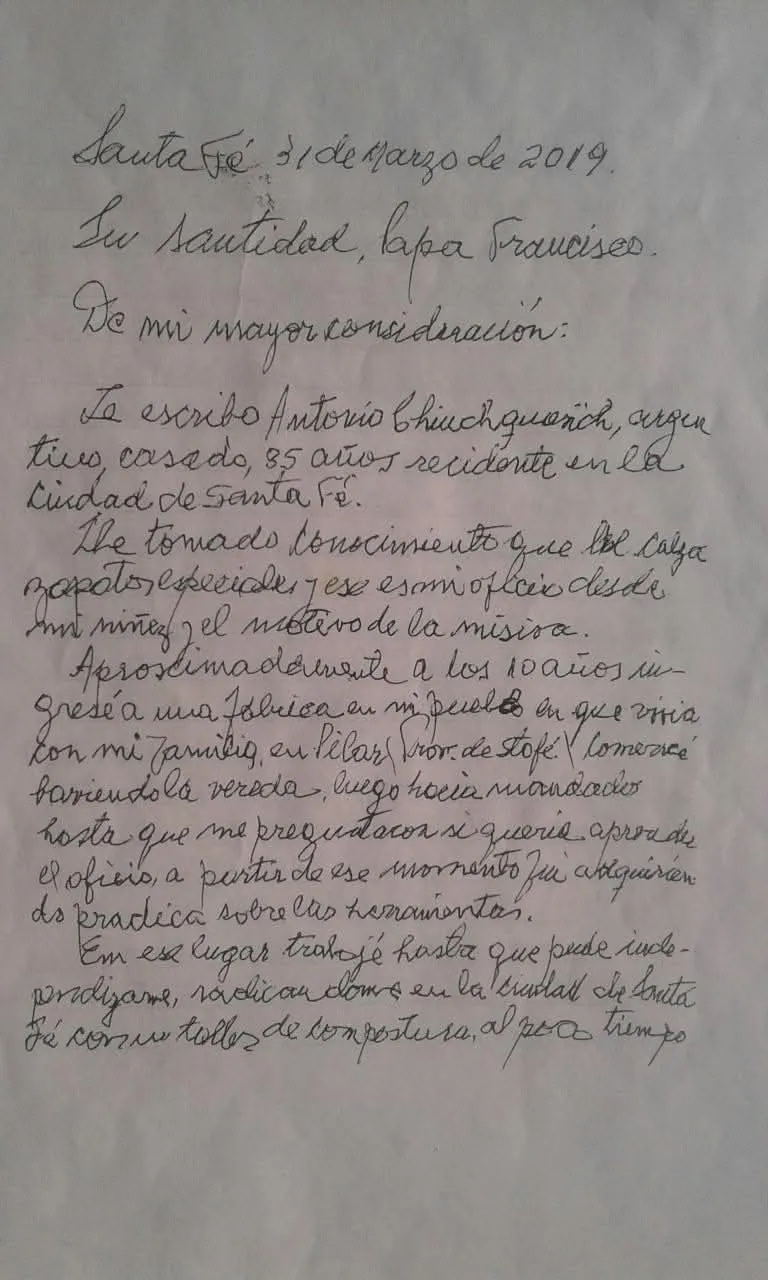 Santa Fé 31 de Marzo de 2019.
Su Santidad, Papa Francisco.
De mi mayor consideración:
Le escribo Antonio Chiuchquerich, argen
tino, casado, 85 años recidente en la
Ciudad de Santa Fé.
He tomado conocimiento que Ud. calza
zapatos especiales y ese es mi oficio desde
mi niñez y el motivo de la misiva.
Aproximadamente a los 10 años in-
gresé a una fábrica en mi pueblo en que vivia
con mi familia, en Pilar (Prov. de Sta fé.) Comencé
barriendo la vereda, luego hacia mandados
hasta que me preguntaron si queria aprender
el oficio, a partir de ese momento fui adquirien
do practica sobre las herramientas.
Em ese lugar trabajé hasta que pude inde-
pendizarme, radicandome en la Ciudad de Santa
Fé con un taller de compostura, al poco tiempo